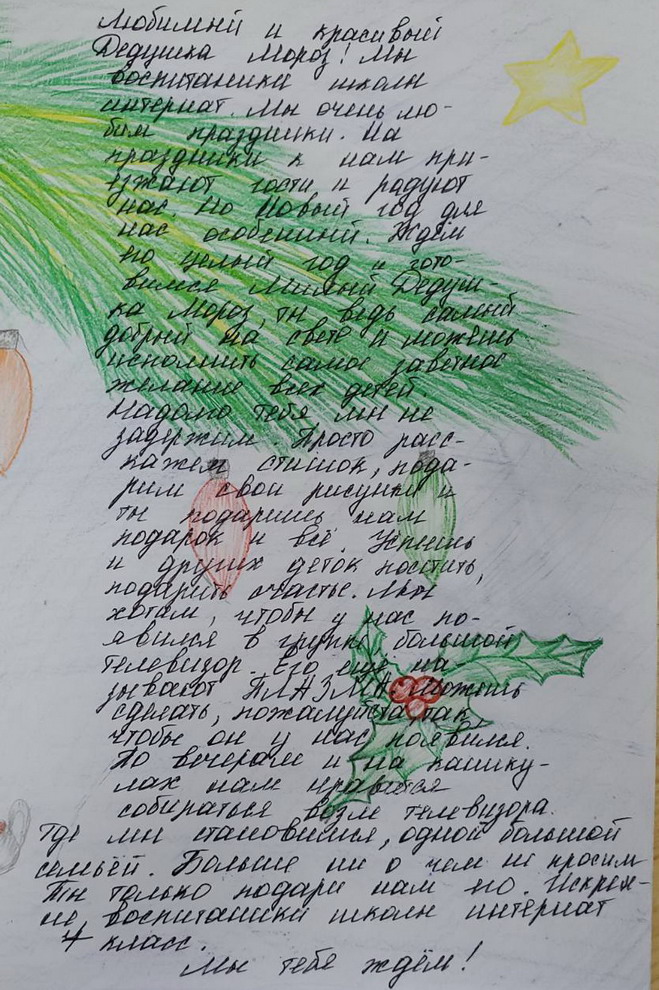 Любимый и красивый
Дедушка Мороз! Мы
воспитаники школы
интернат. Мы очень лю-
бим праздники. На
праздники к нам при-
езжают гости и радуют
нас. Но Новый год для
нас особенный. Ждём
его целый год и гото-
вимся. Милый Дедуш-
ка Мороз, ты ведь самый
добрый на свете и можешь
исполнить самое заветное
желание всех детей.
Надолго тебя мы не
задержим. Просто расс-
кажем стишок, пода-
рим свои рисунки и
ты подаришь нам
подарок и всё. Успеешь
и других деток посетить,
подарить счастье. Мы
хотим, чтобы у нас по-
явился в группе большой
телевизор. Его ещё на-
зывают ПЛАЗМА. Можешь
сделать, пожалуйста, так,
чтобы он у нас появился.
По вечерам и на канику-
лах нам нравится
собираться возле телевизора.
Где мы становимся, одной большой
семьёй. Больше ни о чем не просим
Ты только подари нам его. Искрен-
не, воспитаники школы интернат
4 класс.
Мы тебя ждём!